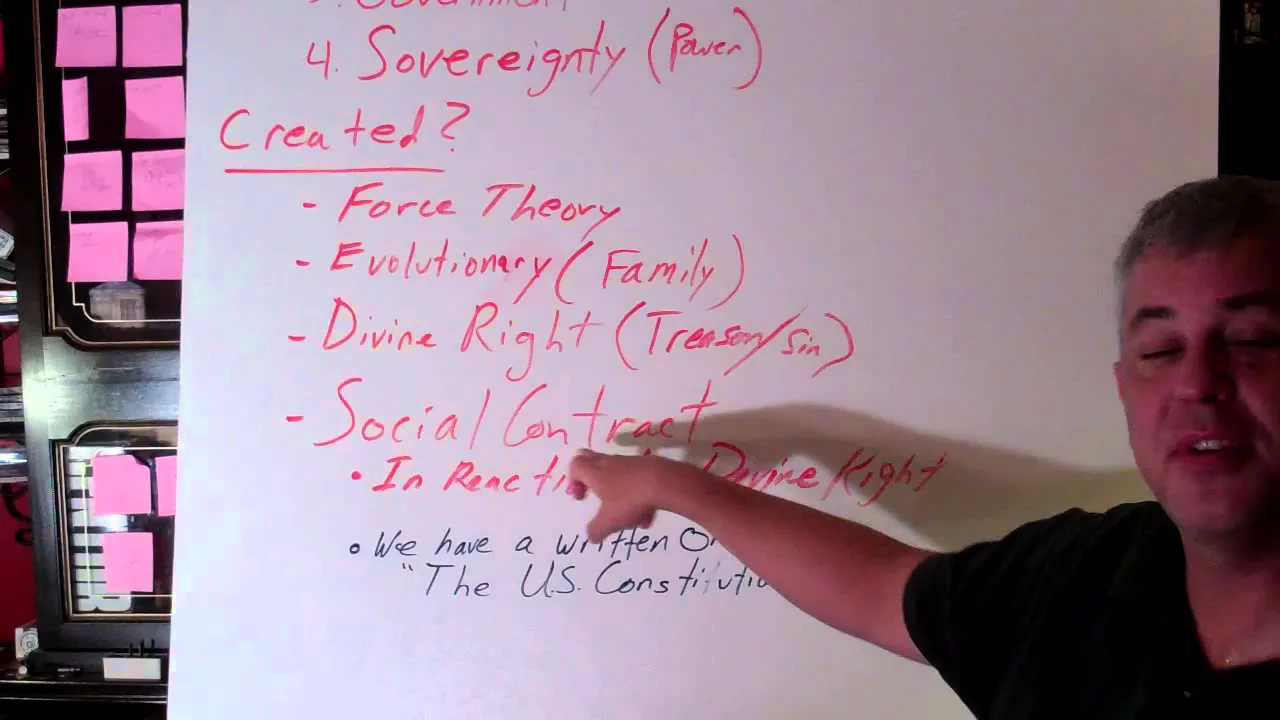 3. Government
4. Sovereignty (Power)
Created?
- Force Theory
- Evolutionary (Family)
- Divine Right (Treason/Sin)
- Social Contract
• In Reacti Divine Right
• We have a written On
"The U.S. Constitutio